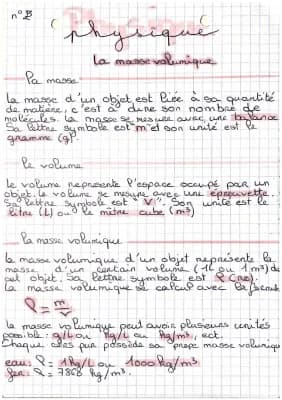 n°2
physique
La masse volumique
La masse
La masse d'un objet est liée à sa quantité
de matière, c'est à dire son nombre de
molécules. La masse se mesure avec, une balance
Sa lettre symbole est "m" et son unité est le
gramme (g).
Le volume
Le volume représente l'espace occupé par un
objet. Le volume se mesure avec une éprouvette.
Sa lettre symbole est "V". Son unité est le
litre (L) ou le mètre cube (m³)
La masse volumique
La masse volumique d'un objet représente la
masse d'un certain volume (1L ou 1m³) de
cet objet. Sa lettre symbole est ρ (rho).
La masse volumique se calcul avec la formule
ρ = m/V
la masse volumique peut avoir plusieurs unités
possible : g/L ou kg/L ou kg/m³, ect.
Chaque corps pur possède sa propre masse volumique
eau : ρ = 1 kg/L ou 1000 kg/m³
fer : ρ = 7868 kg/m³.